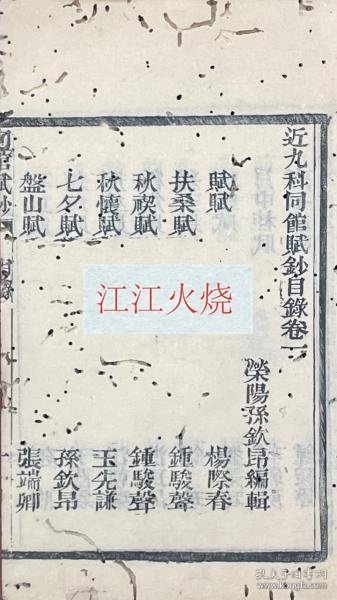 近九科同館賦鈔目錄卷一
滎陽孫欽昂編輯
賦賦 楊際春
扶桑賦 鍾駿聲
秋禊賦 鍾駿聲
秋懷賦 王先謙
七夕賦 孫欽昂
盤山賦 張端卿
同館賦鈔 目錄
江江火烧
孔夫子旧书网